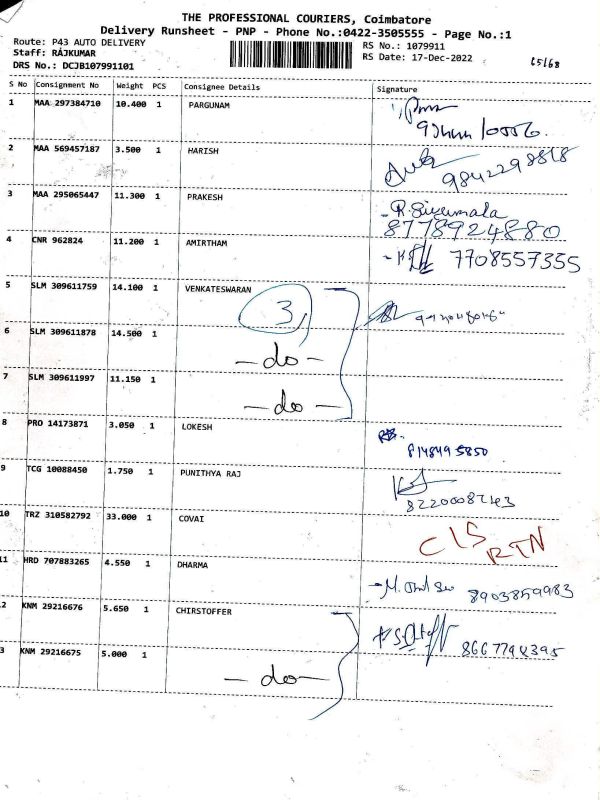 THE PROFESSIONAL COURIERS, Coimbatore
Delivery Runsheet - PNP - Phone No.:0422-3505555 - Page No.:1
Route: P43 AUTO DELIVERY RS No.: 1079911
Staff: RAJKUMAR RS Date: 17-Dec-2022
DRS No.: DCJB107991101
S No Consignment No Weight PCS Consignee Details Signature
1 MAA 297384710 10.400 1 PARGUNAM
2 MAA 569457187 3.500 1 HARISH 9842298818
3 MAA 295065447 11.300 1 PRAKESH
8778924880
4 CNR 962824 11.200 1 AMIRTHAM 7708557355
5 SLM 309611759 14.100 1 VENKATESWARAN
3
6 SLM 309611878 14.500 1
-do-
7 SLM 309611997 11.150 1
-do-
8 PRO 14173871 3.050 1 LOKESH
9 TCG 10088450 1.750 1 PUNITHYA RAJ
10 TRZ 310582792 33.000 1 COVAI
RTN
11 HRD 707883265 4.550 1 DHARMA 8903859983
2 KNM 29216676 5.650 1 CHIRSTOFFER
3 KNM 29216675 5.000 1
-do-